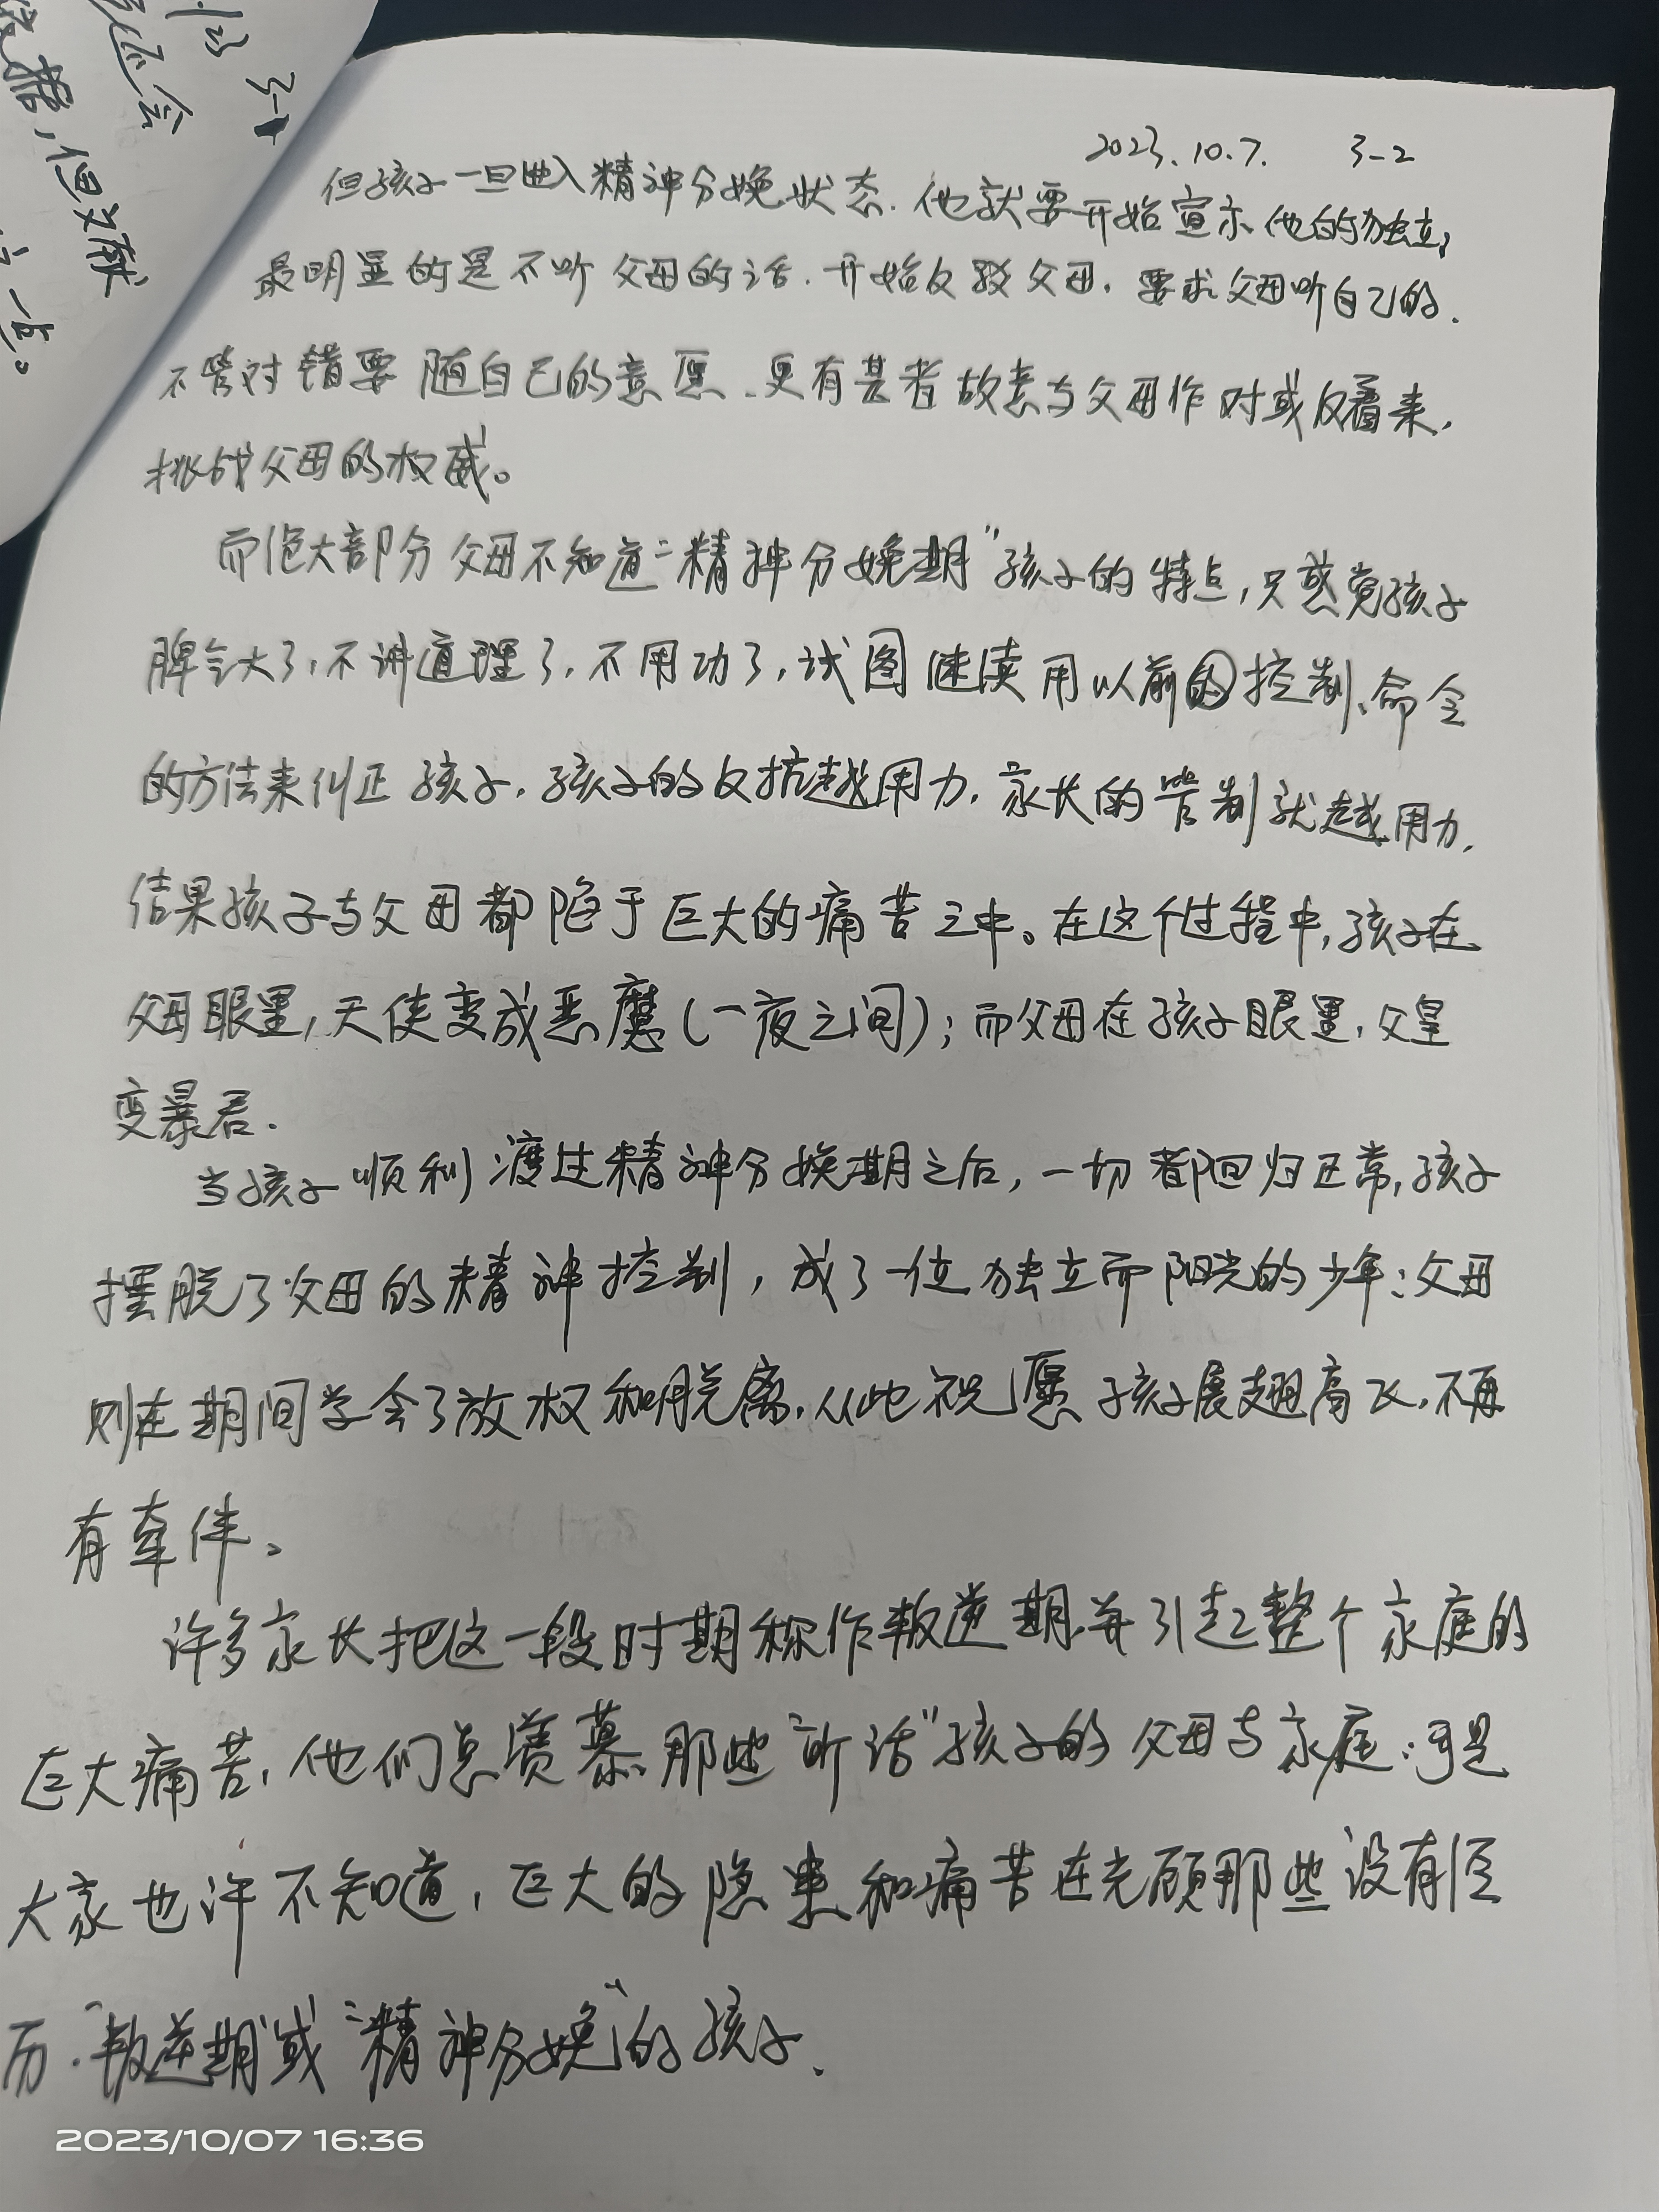 2023.10.7. 3-2
但孩子一旦进入精神分娩状态.他就要开始宣示他的独立,
最明显的是不听父母的话.开始反驳父母,要求父母听自己的.
不管对错要随自己的意愿.更有甚者故意与父母作对或反着来,
挑战父母的权威。
而绝大部分父母不知道"精神分娩期"孩子的特点,只感觉孩子
脾气大了,不讲道理了,不用功了,试图继续用以前的控制、命令
的方法来纠正孩子,孩子的反抗越用力,家长的管制就越用力,
结果孩子与父母都陷于巨大的痛苦之中。在这个过程中,孩子在
父母眼里,天使变成恶魔(一夜之间);而父母在孩子眼里,父皇
变暴君.
当孩子顺利渡过精神分娩期之后,一切都回归正常,孩子
摆脱了父母的精神控制,成了一位独立而阳光的少年;父母
则在期间学会了放权和脱离,从此祝愿孩子展翅高飞,不再
有牵绊。
许多家长把这一段时期称作叛逆期,并引起整个家庭的
巨大痛苦,他们总羡慕那些"听话"孩子的父母与家庭;可是
大家也许不知道,巨大的隐患和痛苦在光顾那些没有经
历"叛逆期"或"精神分娩"的孩子.
还会
3-1
但文献
一点。
2023/10/07 16:36